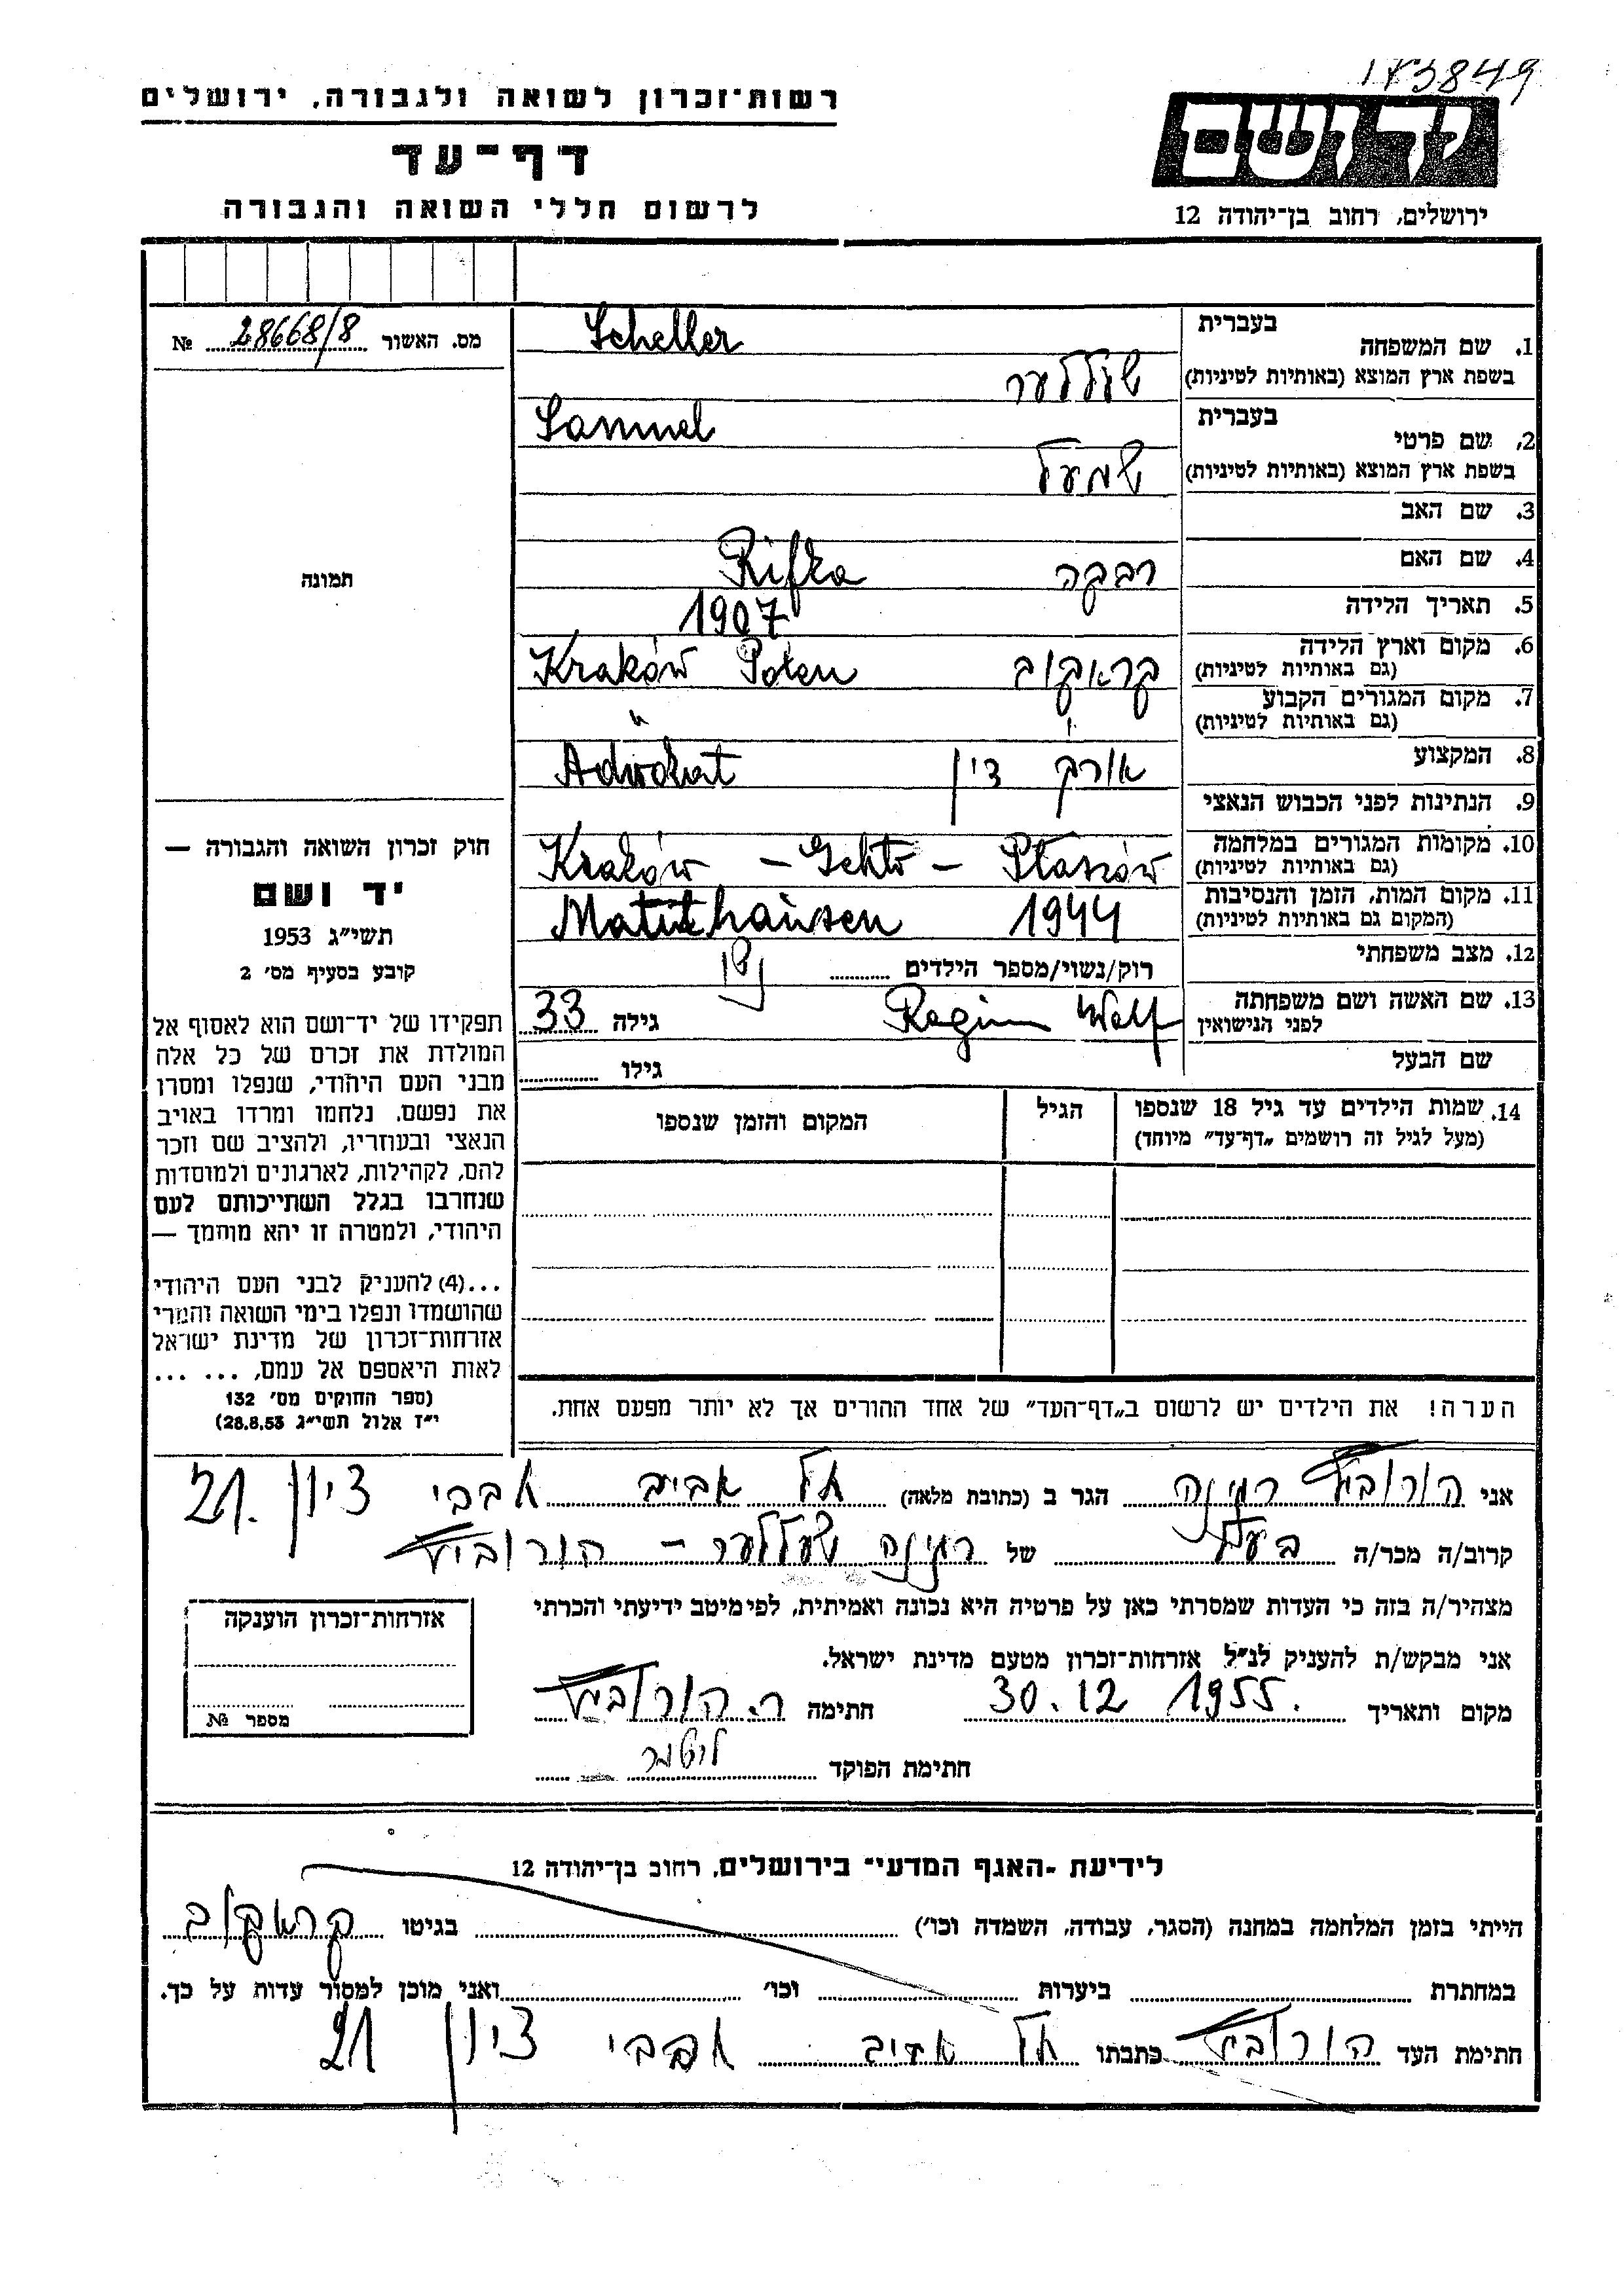 173849
רשות־זכרון לשואה ולגבורה, ירושלים
דף־עד
לרשום חללי השואה והגבורה
ידושם
ירושלים, רחוב בן־יהודה 12
מס. האשור 28668/8 №
בעברית
1. שם המשפחה
Scheller
בשפת ארץ המוצא (באותיות לטיניות)
שעללער
בעברית
2. שם פרטי
Samuel
בשפת ארץ המוצא (באותיות לטיניות)
3. שם האב
4. שם האם רבקה Rifka
5. תאריך הלידה 1907
6. מקום וארץ הלידה
(גם באותיות לטיניות)
קראקוב Kraków Polen
7. מקום המגורים הקבוע
(גם באותיות לטיניות)
"
8. המקצוע עורך דין Adwokat
9. הנתינות לפני הכבוש הנאצי
10. מקומות המגורים במלחמה
(גם באותיות לטיניות)
Kraków – Gehto – Płaszów
11. מקום המות, הזמן והנסיבות
(המקום גם באותיות לטיניות)
Matuthausen 1944
12. מצב משפחתי רוק/נשוי/מספר הילדים
13. שם האשה ושם משפחתה
לפני הנישואין
Regina Wolf גילה 33
שם הבעל גילו
14. שמות הילדים עד גיל 18 שנספו
(מעל לגיל זה רושמים „דף־עד” מיוחד)
הגיל
המקום והזמן שנספו
תמונה
חוק זכרון השואה והגבורה —
יד ושם
תשי״ג 1953
קובע בסעיף מס׳ 2
תפקידו של יד־ושם הוא לאסוף אל
המולדת את זכרם של כל אלה
מבני העם היהודי, שנפלו ומסרו
את נפשם, נלחמו ומרדו באויב
הנאצי ובעוזריו, ולהציב שם וזכר
להם, לקהילות, לארגונים ולמוסדות
שנחרבו בגלל השתייכותם לעם
היהודי, ולמטרה זו יהא מוסמך —
...(4) להעניק לבני העם היהודי
שהושמדו ונפלו בימי השואה והמרי
אזרחות־זכרון של מדינת ישראל
לאות היאספם אל עמם, ... ...
(ספר החוקים מס׳ 132
י״ז אלול תשי״ג 28.8.53)
הערה! את הילדים יש לרשום ב„דף־העד” של אחד ההורים אך לא יותר מפעם אחת.
אני הורוביץ רגינה הגר ב (כתובת מלאה) תל אביב ציון 21.
קרוב/ה מכר/ה של רגינה שעללער – הורוביץ
מצהיר/ה בזה כי העדות שמסרתי כאן על פרטיה היא נכונה ואמיתית, לפי מיטב ידיעתי והכרתי
אני מבקש/ת להעניק לנ״ל אזרחות־זכרון מטעם מדינת ישראל.
מקום ותאריך 30.12 1955. חתימה ר. הורוביץ
חתימת הפוקד
אזרחות־זכרון הוענקה
מספר №
לידיעת ״האגף המדעי״ בירושלים, רחוב בן־יהודה 12
הייתי בזמן המלחמה במחנה (הסגר, עבודה, השמדה וכו׳) בגיטו קראקוב
במחתרת ביערות וכו׳ ואני מוכן למסור עדות על כך.
חתימת העד הורוביץ כתבתו תל אביב ציון 21